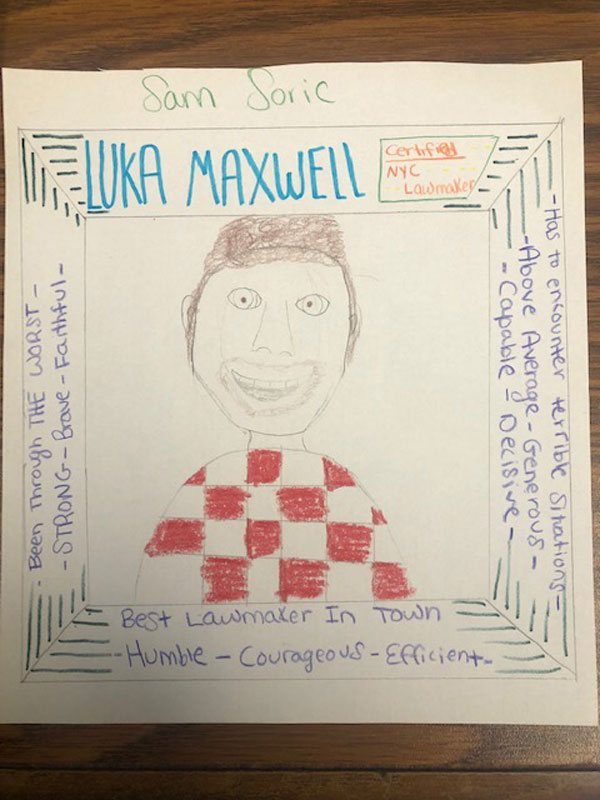 Sam Soric
LUKA MAXWELL
Certified
NYC
Lawmaker
- Been Through THE WORST -
- STRONG - Brave - Faithful -
- Has to encounter terrible Situations -
- Above Average - Generous -
- Capable - Decisive -
Best Lawmaker In Town
- Humble - Courageous - Efficient -